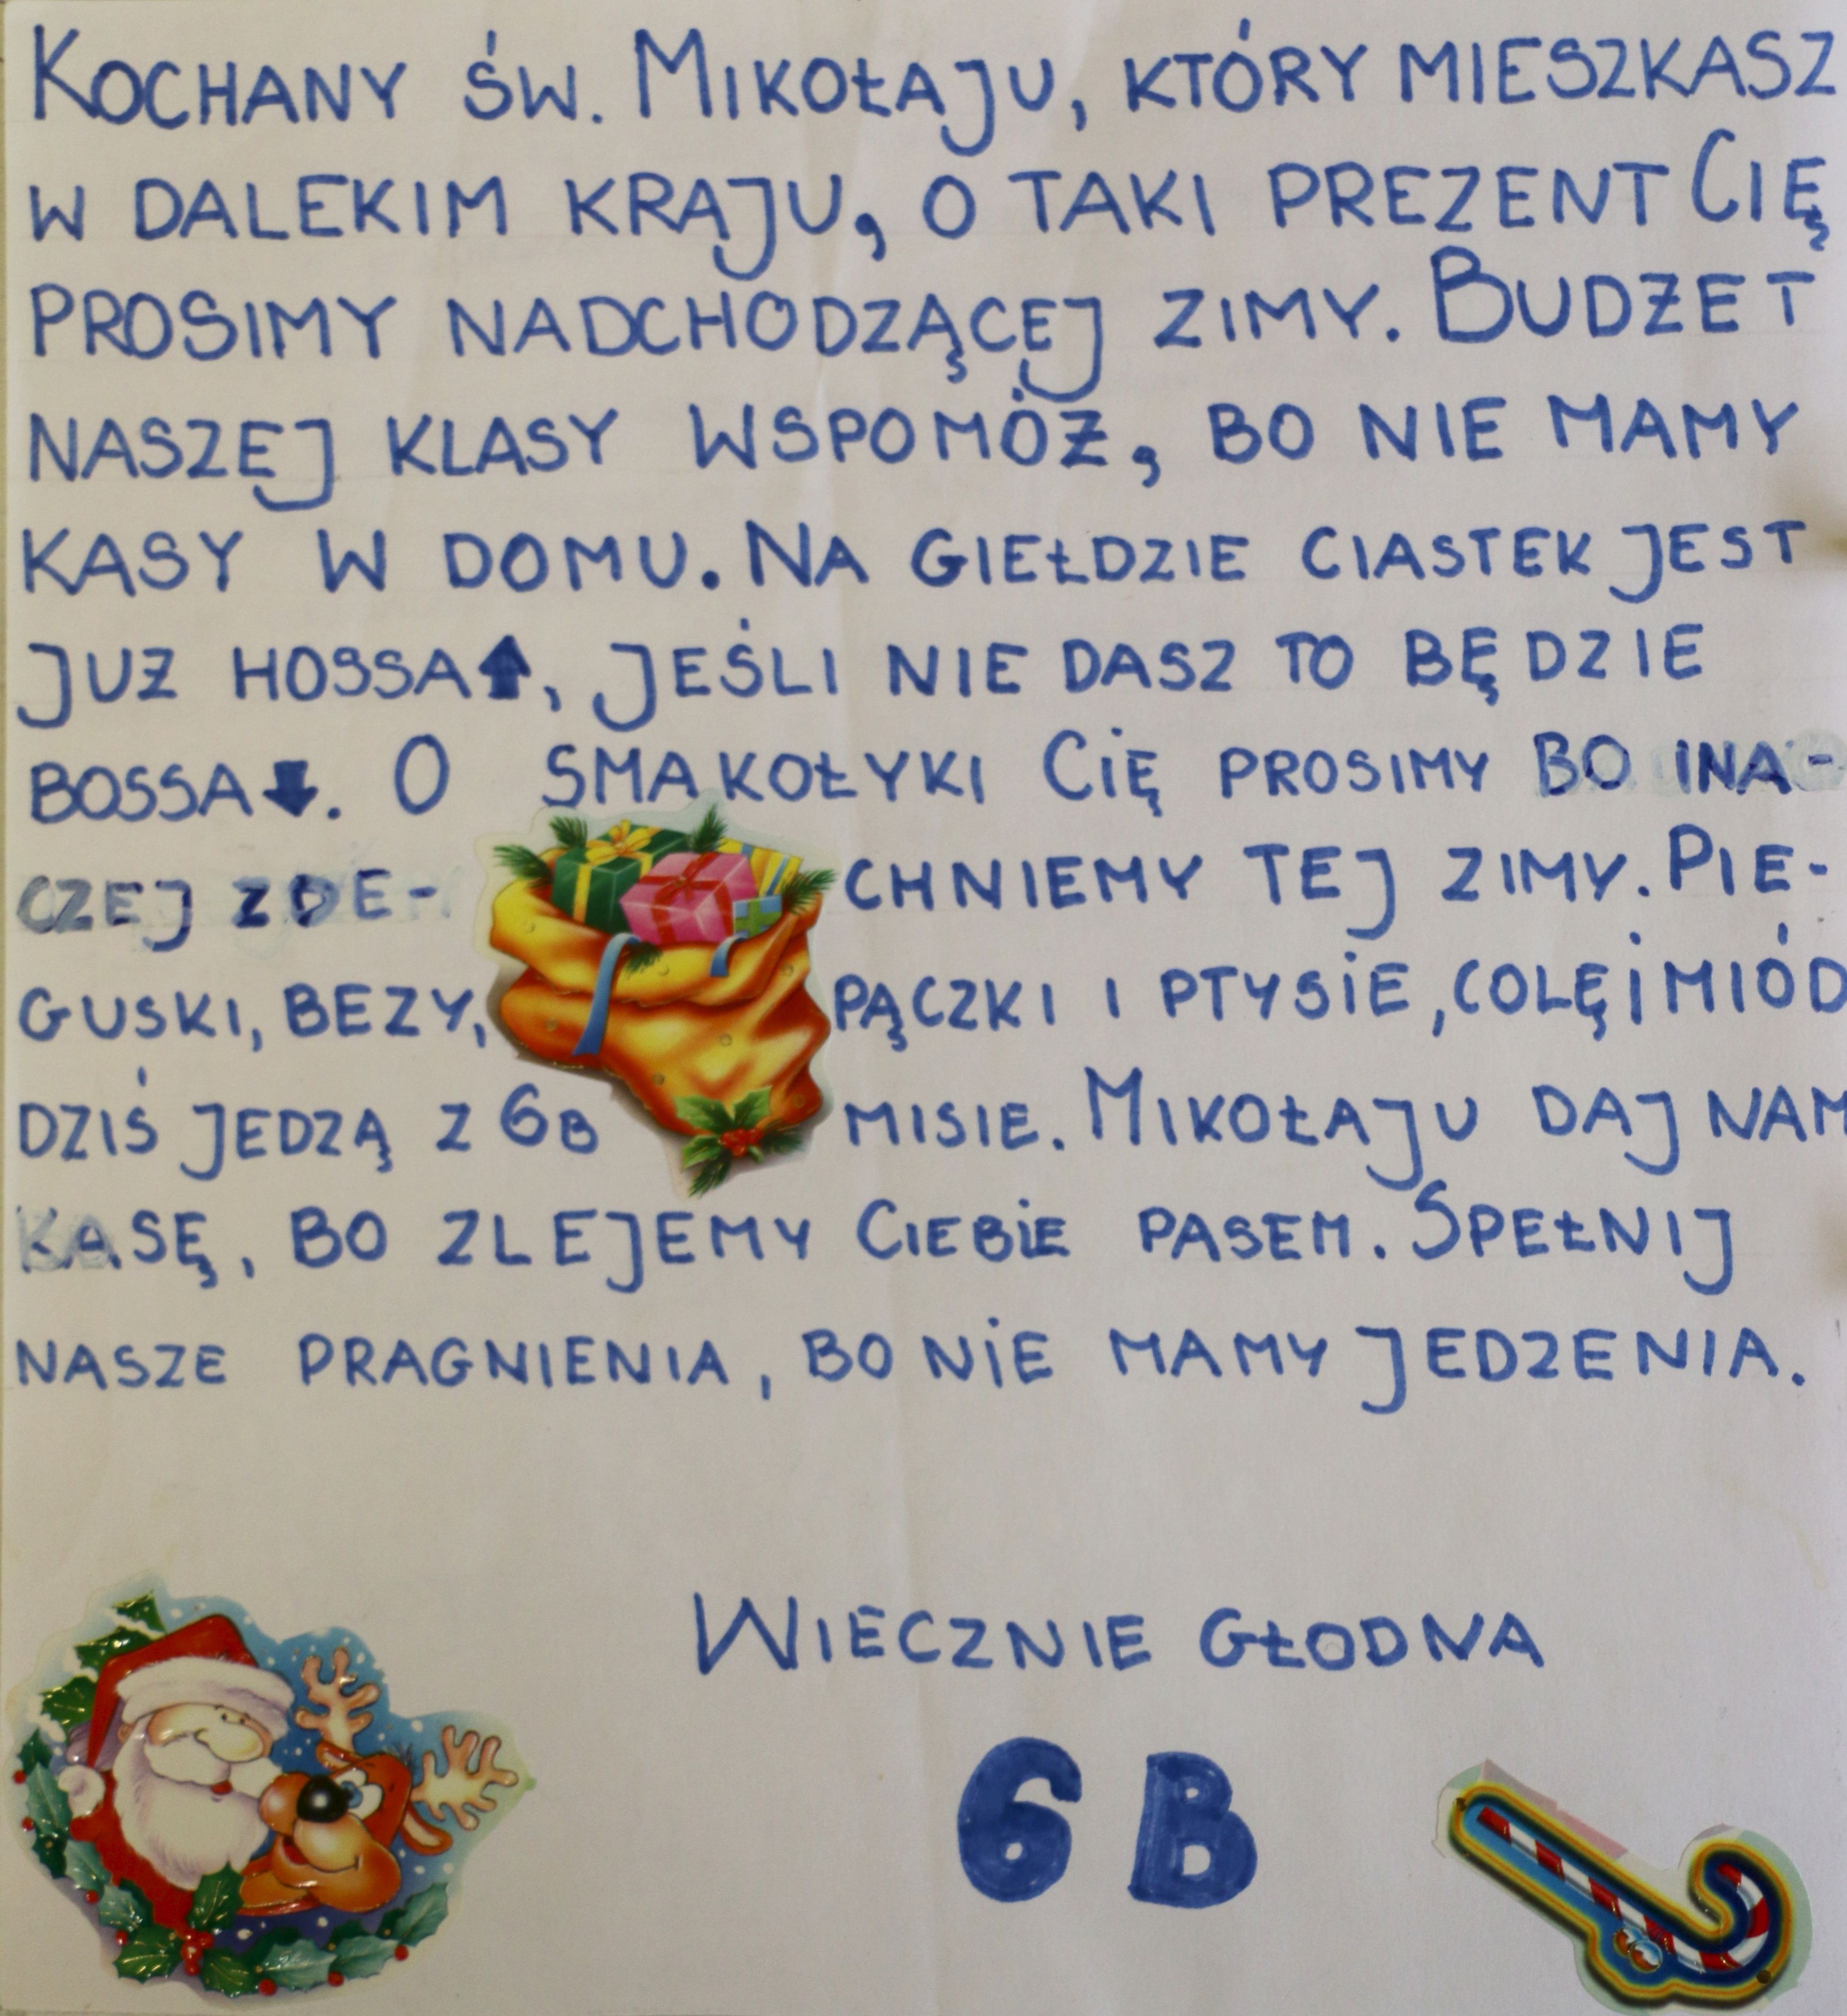 KOCHANY ŚW. MIKOŁAJU, KTÓRY MIESZKASZ
W DALEKIM KRAJU, O TAKI PREZENT CIĘ
PROSIMY NADCHODZĄCEJ ZIMY. BUDŻET
NASZEJ KLASY WSPOMÓŻ, BO NIE MAMY
KASY W DOMU. NA GIEŁDZIE CIASTEK JEST
JUŻ HOSSA⬆, JEŚLI NIE DASZ TO BĘDZIE
BOSSA⬇. O SMAKOŁYKI CIĘ PROSIMY BO INA-
CZEJ ZDE-CHNIEMY TEJ ZIMY. PIE-
GUSKI, BEZY, PĄCZKI I PTYSIE, COLĘ I MIÓD
DZIŚ JEDZĄ Z 6B MISIE. MIKOŁAJU DAJ NAM
KASĘ, BO ZLEJEMY CIEBIE PASEM. SPEŁNIJ
NASZE PRAGNIENIA, BO NIE MAMY JEDZENIA.
WIECZNIE GŁODNA
6B